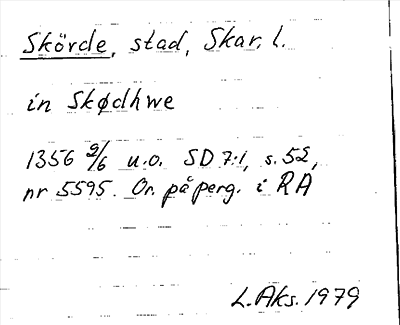 Skörde, stad, Skar. l.
in Skødhwe
1356 2/6 u.o. SD 7:1, s. 52,
nr 5595. Or. på perg. i RA
L. Aks. 1979